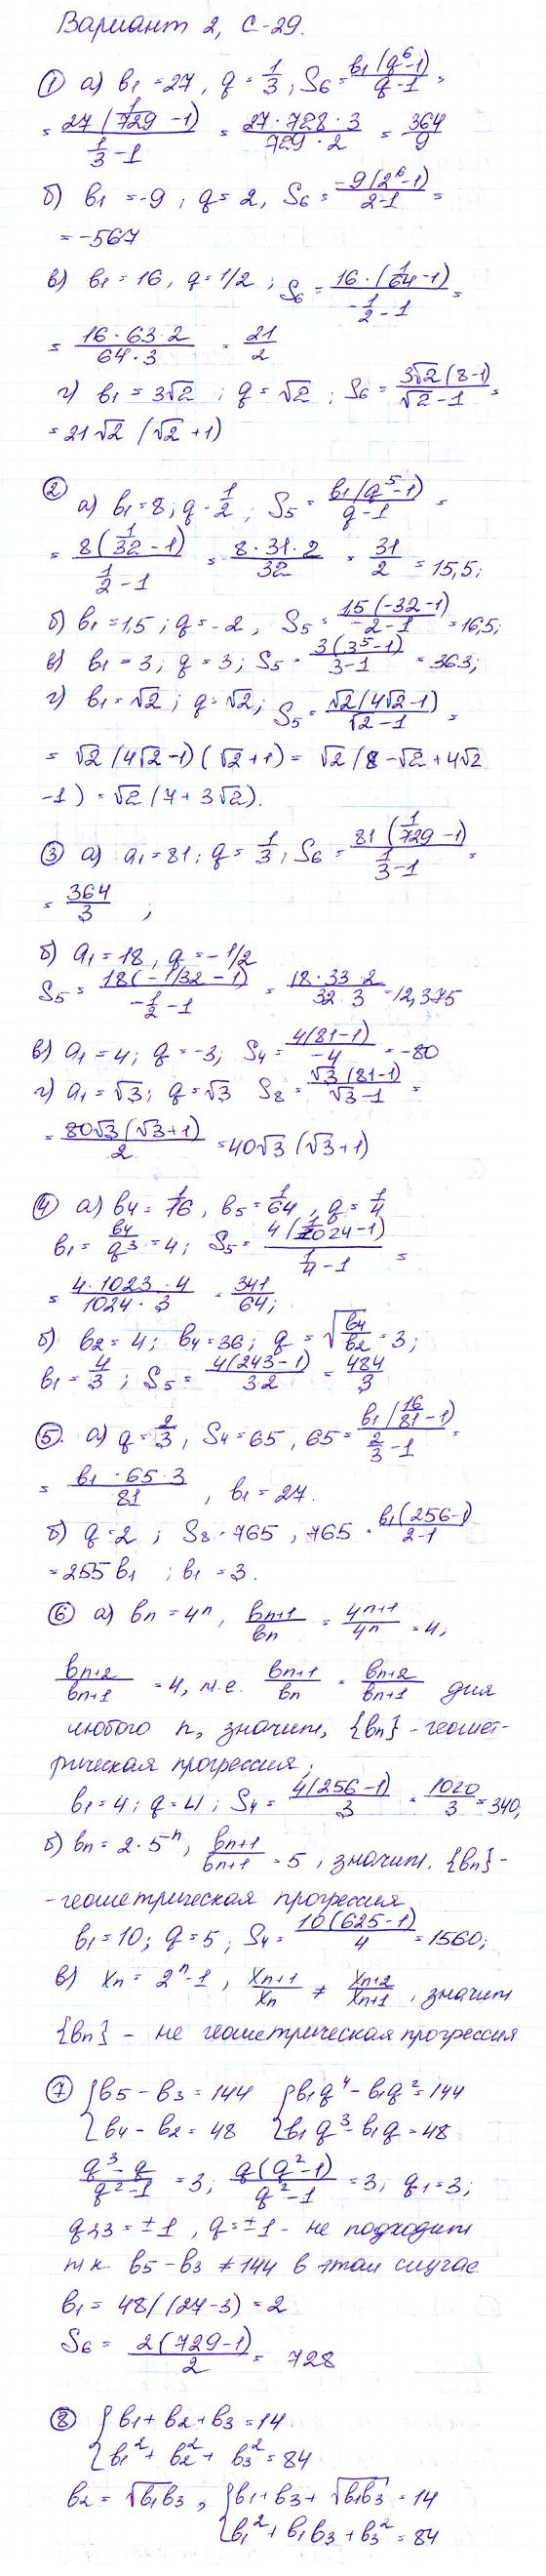 Вариант 2, С-29.
① а) в₁ = 27, q = 1/3; S₆ = в₁(q⁶-1)/(q-1) =
= 27(1/729 - 1)/(1/3 - 1) = 27·728·3/(729·2) = 364/9
б) в₁ = -9; q = 2, S₆ = -9(2⁶-1)/(2-1) =
= -567
в) в₁ = 16, q = 1/2; S₆ = 16·(1/64 - 1)/(-1/2 - 1) =
= 16·63·2/(64·3) = 21/2
г) в₁ = 3√2; q = √2; S₆ = 3√2(8-1)/(√2-1) =
= 21√2(√2+1)
② а) в₁ = 8; q = 1/2; S₅ = в₁(q⁵-1)/(q-1) =
= 8(1/32 - 1)/(1/2 - 1) = 8·31·2/32 = 31/2 = 15,5;
б) в₁ = 1,5; q = -2, S₅ = 1,5(-32-1)/(-2-1) = 16,5;
в) в₁ = 3; q = 3; S₅ = 3(3⁵-1)/(3-1) = 363;
г) в₁ = √2; q = √2; S₅ = √2(4√2-1)/(√2-1) =
= √2(4√2-1)(√2+1) = √2(8-√2+4√2
-1) = √2(7+3√2).
③ а) а₁ = 81; q = 1/3, S₆ = 81(1/729 - 1)/(1/3 - 1) =
= 364/3;
б) а₁ = 18, q = -1/2
S₅ = 18(-1/32 - 1)/(-1/2 - 1) = 18·33·2/(32·3) = 12,375
в) а₁ = 4; q = -3; S₄ = 4(81-1)/-4 = -80
г) а₁ = √3; q = √3 S₈ = √3(81-1)/(√3-1) =
= 80√3(√3+1)/2 = 40√3(√3+1)
④ а) в₄ = 1/16, в₅ = 1/64, q = 1/4
в₁ = в₄/q³ = 4; S₅ = 4(1/1024 - 1)/(1/4 - 1) =
= 4·1023·4/(1024·3) = 341/64;
б) в₂ = 4; в₄ = 36; q = √(в₄/в₂) = 3;
в₁ = 4/3; S₅ = 4(243-1)/32 = 484/3
⑤. а) q = 2/3, S₄ = 65, 65 = в₁(16/81 - 1)/(2/3 - 1) =
= в₁·65·3/81, в₁ = 27.
б) q = 2; S₈ = 765, 765 = в₁(256-1)/(2-1)
= 255в₁; в₁ = 3.
⑥ а) вn = 4ⁿ, вn+1/вn = 4ⁿ⁺¹/4ⁿ = 4;
вn+2/вn+1 = 4, т.е. вn+1/вn = вn+2/вn+1 для
любого n, значит, {вn} - геомет-
рическая прогрессия;
в₁ = 4; q = 4; S₄ = 4(256-1)/3 = 1020/3 = 340;
б) вn = 2·5ⁿ, вn+1/вn+1 = 5, значит, {вn} -
- геометрическая прогрессия
в₁ = 10; q = 5; S₄ = 10(625-1)/4 = 1560;
в) xn = 2ⁿ-1, xn+1/xn ≠ xn+2/xn+1, значит
{вn} - не геометрическая прогрессия
⑦ {в₅ - в₃ = 144 {в₁q⁴ - в₁q² = 144
{в₄ - в₂ = 48 {в₁q³ - в₁q = 48
(q³-q)/(q²-1) = 3; q(q²-1)/(q²-1) = 3; q₁ = 3;
q₂,₃ = ±1, q = ±1 - не подходит
т.к. в₅ - в₃ ≠ 144 в этом случае
в₁ = 48/(27-3) = 2
S₆ = 2(729-1)/2 = 728
⑧ {в₁ + в₂ + в₃ = 14
{в₁² + в₂² + в₃² = 84
в₂ = √в₁в₃, {в₁ + в₃ + √в₁в₃ = 14
{в₁² + в₁в₃ + в₃² = 84